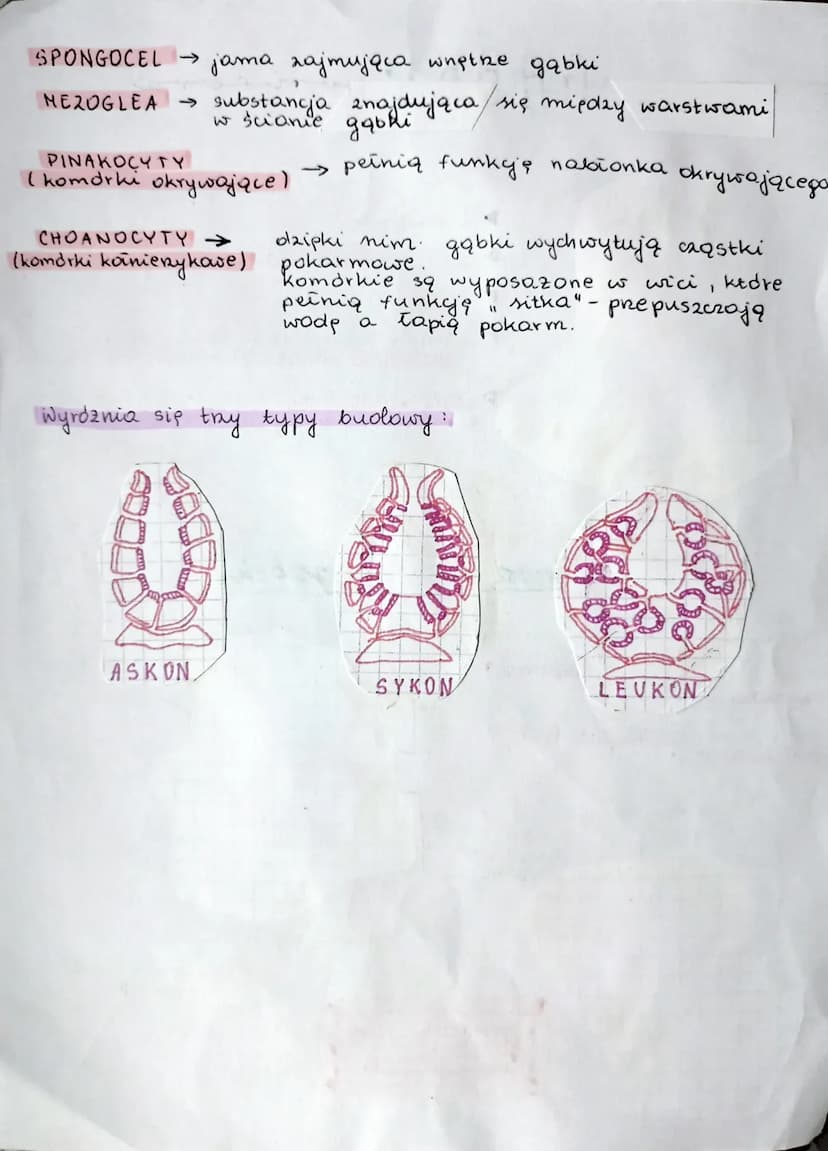 SPONGOCEL → jama zajmująca wnętrze gąbki
MEZOGLEA → substancja znajdująca się między warstwami
w ścianie gąbki
PINAKOCYTY
(komórki okrywające) → pełnią funkcję nabłonka okrywającego
CHOANOCYTY → dzięki nim gąbki wychwytują cząstki
(komórki kołnierzykowe) pokarmowe.
komórkie są wyposażone w wici, które
pełnią funkcję „sitka" - przepuszczają
wodę a łapią pokarm.
Wyróżnia się trzy typy budowy:
ASKON
SYKON
LEUKON